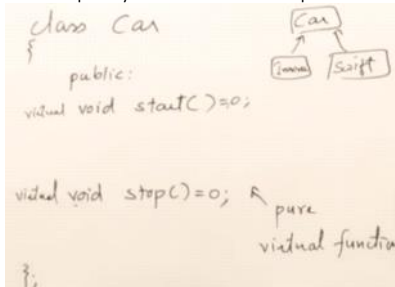 class Car
{
public:
virtual void start()=0;
virtual void stop()=0;
pure
virtual function
};
Car
Innova
Swift